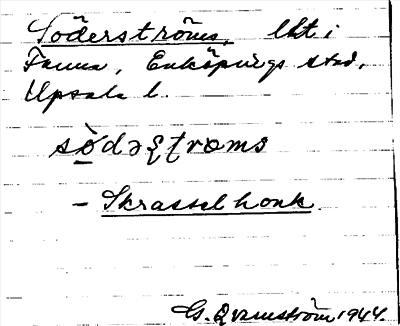 Söderströms, lht i
Fanna, Enköpings stad,
Upsala l.
sö̀dəʂʈroms
- Skrasselhonk
G. Qvarnström 1944.